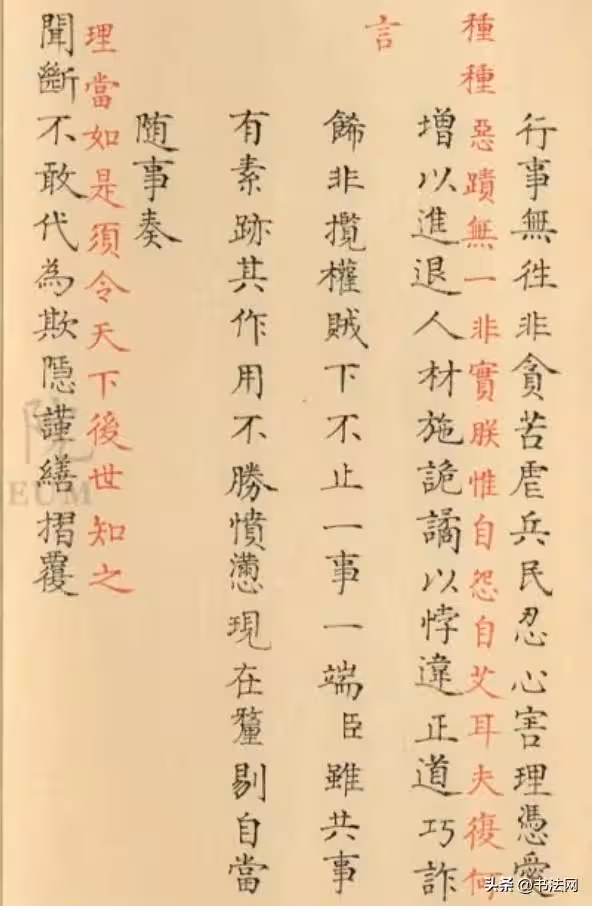 行事無徃非貪苦虐兵民忍心害理憑愛
種種惡蹟無一非實朕惟自怨自艾耳夫復何
增以進退人材施詭譎以悖違正道巧詐
言
餙非攬權賊下不止一事一端臣雖共事
有素跡其作用不勝憤懣現在釐剔自當
随事奏
理當如是須令天下後世知之
聞斷不敢代為欺隱謹繕摺覆
院
EUM
头条 @书法网